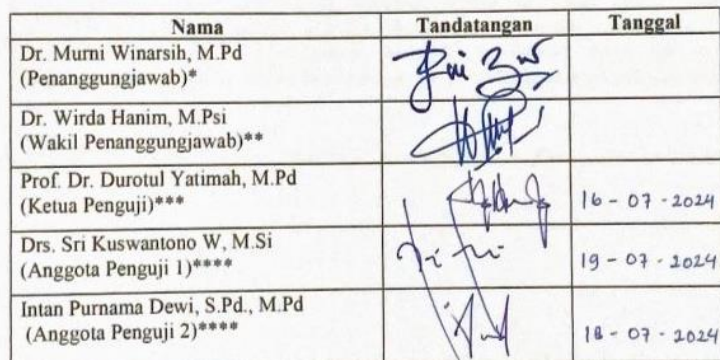 Nama Tandatangan Tanggal
Dr. Murni Winarsih, M.Pd
(Penanggungjawab)*
Dr. Wirda Hanim, M.Psi
(Wakil Penanggungjawab)**
Prof. Dr. Durotul Yatimah, M.Pd
(Ketua Penguji)*** 16 - 07 - 2024
Drs. Sri Kuswantono W, M.Si
(Anggota Penguji 1)**** 19 - 07 - 2024
Intan Purnama Dewi, S.Pd., M.Pd
(Anggota Penguji 2)**** 18 - 07 - 2024